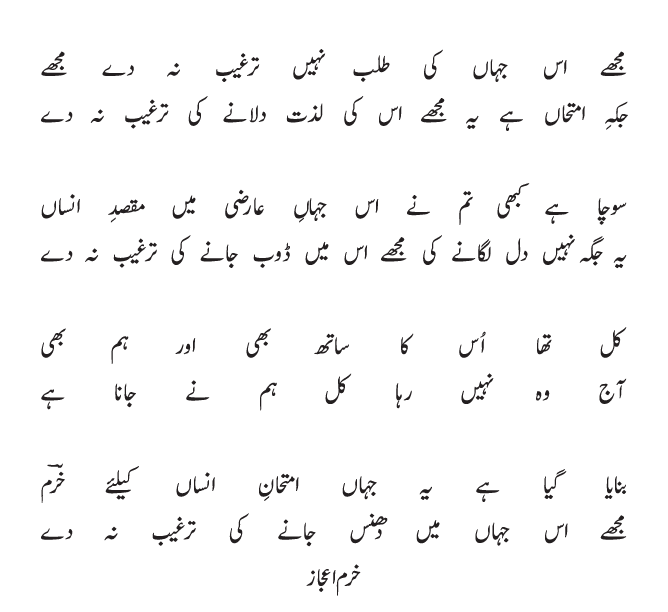 مجھے اس جہاں کی طلب نہیں ترغیب نہ دے مجھے
جگہِ امتحاں ہے یہ مجھے اس کی لذت دلانے کی ترغیب نہ دے
سوچا ہے کبھی تم نے اس جہاںِ عارضی میں مقصدِ انساں
یہ جگہ نہیں دل لگانے کی مجھے اس میں ڈوب جانے کی ترغیب نہ دے
کل تھا اُس کا ساتھ بھی اور ہم بھی
آج وہ نہیں رہا کل ہم نے جانا ہے
بنایا گیا ہے یہ جہاں امتحانِ انساں کیلئے خرمؔ
مجھے اس جہاں میں دھنس جانے کی ترغیب نہ دے
خرم اعجاز